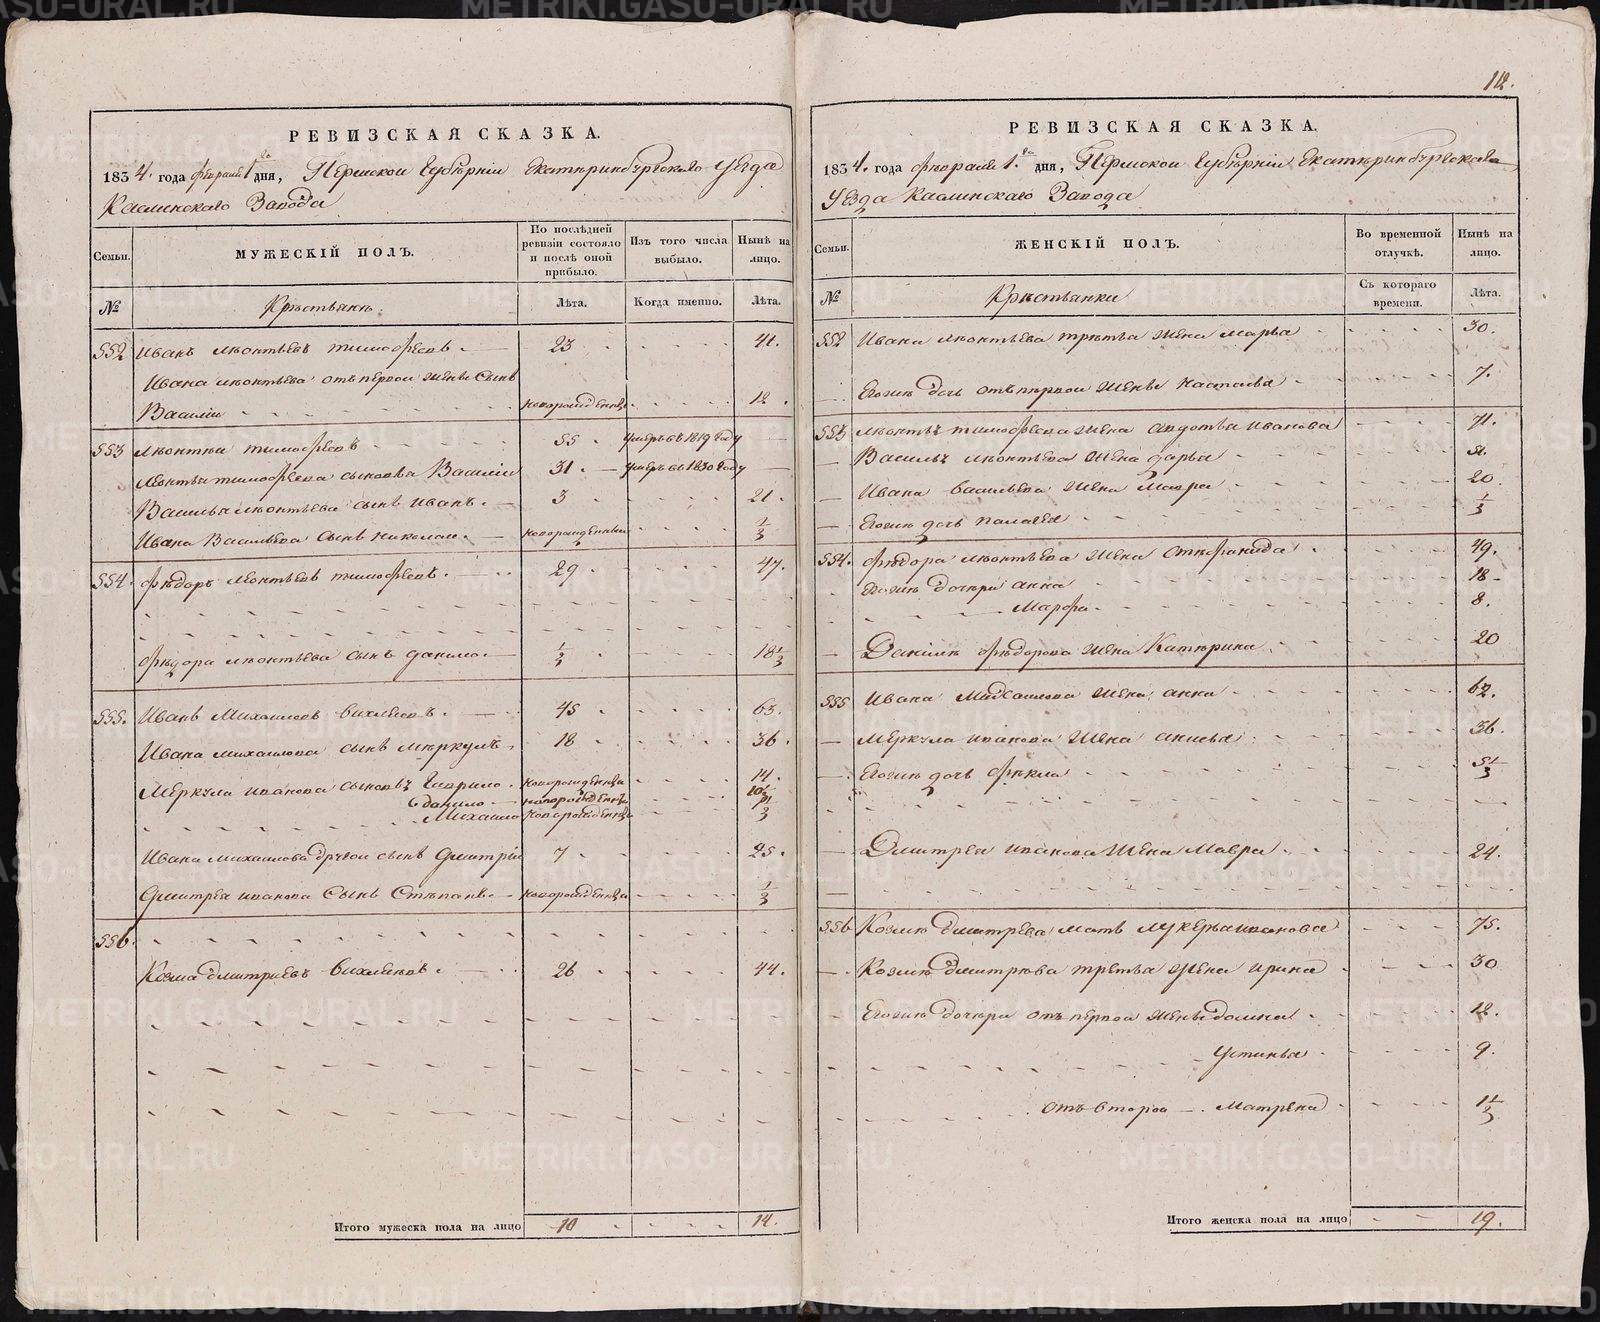 112.
РЕВИЗСКАЯ СКАЗКА.
1834. года февраля 1го дня, Пермской Губѣрніи Екатѣринбѣргскаго Уезда
Каслинскаго Завода
Семьи.
МУЖЕСКІЙ ПОЛЪ.
По послѣдней ревизіи состояло и послѣ оной прибыло.
Изъ того числа выбыло.
Нынѣ на лицо.
№
Крѣстьянъ.
Лѣта.
Когда именно.
Лѣта.
552 Иванъ Леонтьевъ Тимофеевъ. 23 41.
Ивана Леонтьева отъ первой жены сынъ
Василіи новорожденны 12.
553 Леонтѣи Тимофеевъ 55 умеръ въ 1819 году
Леонтья Тимофеева сыновья Василіи 31. умеръ въ 1830 году
Василья Леонтьева сынъ Иванъ. 3 21.
Ивана Васильева сынъ Николаи. новорожденныи 1/3
554. Фѣдоръ Леонтьевъ Тимофеевъ. 29 47.
Фѣдора Леонтьева сынъ Данило. 1/3 18 1/3
555. Иванъ Михаиловъ 45 63.
Ивана Михаилова сынъ Мѣркулъ. 18 36.
Меркула Иванова сыновья Гаврило. новорожденны 14.
Данило новорожденны 10 1/2
Михаило новорожденны
Ивана Михаилова другои сынъ Дмитріи 7 25.
Дмитрея Иванова сынъ Стѣпанъ. новорожденны 1/3
556.
Козма Дмитриевъ 26 44.
Итого мужеска пола на лицо 10 14.
РЕВИЗСКАЯ СКАЗКА.
1834. года февраля 1.го дня, Пѣрмскои Губѣрніи Екатѣринбѣргскаго
Уезда Каслинскаго Завода
Семьи.
ЖЕНСКІЙ ПОЛЪ.
Во временной отлучкѣ.
Нынѣ на лицо.
№
Крѣстьянки
Съ котораго времени.
Лѣта.
552 Ивана Леонтьева трѣтья жена Марья 30.
Егожъ дочь отъ пѣрвои жены Настасья 7.
553 Леонтья Тимофеева жена Авдотья Иванова 71.
Василья Леонтьева жена Дарья 51.
Ивана Васильева жена Мавра 20.
Егожъ дочь Палагея 1/3
554. Фѣдора Леонтьева жена Стѣфанида 49.
Егожъ дочѣри Анна 18
Марфа 8.
Данилы Фѣдорова жена Катѣрина 20
555 Ивана Михаилова жена Анна 62.
Меркула Иванова жена Анисья 36.
Егожъ дочь Фѣкла 5 1/3
Дмитрея Иванова жена Мавра 24.
556 Козмы Дмитрева мать Лукерья Иванова 75.
Козмы Дмитрева третья жена Ирина 30
Егожъ дочѣри отъ первои жены Домна 12.
Устинья 9.
отъ второи Матрена 1 1/2
Итого женска пола на лицо 19.
METRIKI.GASO-URAL.RU